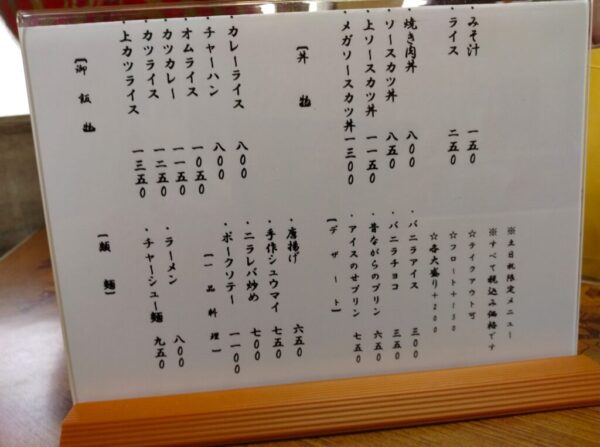 【御飯物】
・上カツライス 一三五〇
・カツライス 一二五〇
・カツカレー 一一五〇
・オムライス 一〇五〇
・チャーハン 八〇〇
・カレーライス 八〇〇
【丼物】
・メガソースカツ丼 一三〇〇
・上ソースカツ丼 一一五〇
・ソースカツ丼 八五〇
・焼き肉丼 八〇〇
・ライス 二五〇
・みそ汁 一五〇
【類麺】
・チャーシュー麺 九五〇
・ラーメン 八〇〇
【一品料理】
・ポークソテー 一一〇〇
・ニラレバ炒め 七〇〇
・手作シュウマイ 七五〇
・唐揚げ 六五〇
【デザート】
・アイスのせプリン 七五〇
・昔ながらのプリン 六五〇
・バニラチョコ 三五〇
・バニラアイス 三〇〇
☆各大盛り＋200
☆フロート＋150
☆テイクアウト可
※すべて税込み価格です
※土日祝限定メニュー